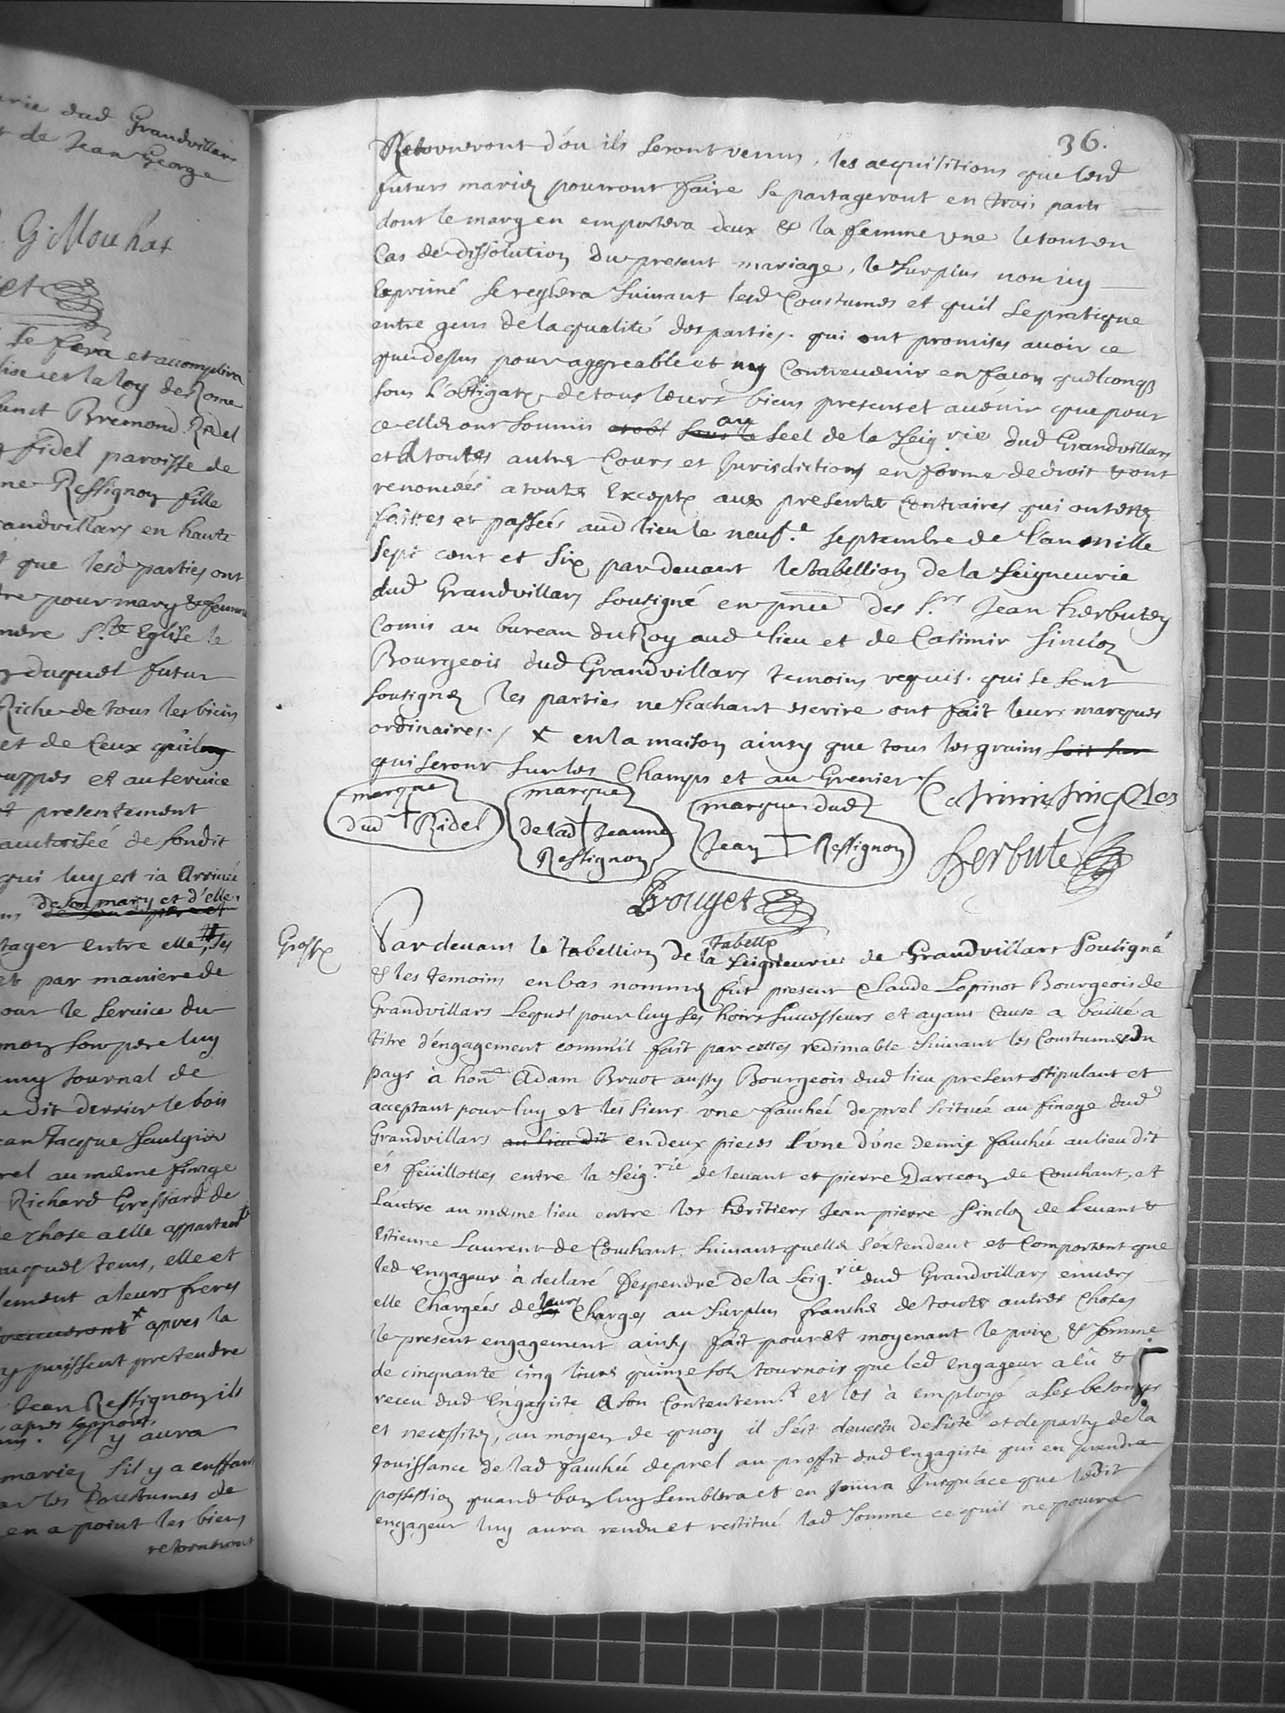 arie dud Grandvillars
de Jean George
G. Mouhat
et
se fera et accomplira
lise et la loy de Rome
Bremond Ridel
fidel paroisse de
ne Ressignon fille
randvillars en haute
que lesd parties ont
tre pour mary & femme
ndre Ste Eglise le
duquel futur
Riche de tous les biens
et de Ceux quil
et au service
presentement
authorisée de sondit
qui luy est ia Arrivée
de son mary et d'elle
tager entre elle, ses
et par maniere de
our le service du
son pere luy
Journal de
dit derrier le bois
ean Jacque Saulgier
rel au mème finage
Richard Gressard de
e chose a elle appartent
auquel tems, elle et
lement a leurs freres
apres la
y puissent pretendre
Jean Ressignon ils
y aura
mariez s'il y a enffans
les Coustumes de
en a point les biens
retourneront
36.
Retourneront d'ou ils seront venus, les acquisitions que lesd
futurs mariez pourront faire se partageront en trois parts
dont le mary en emportera deux & la femme une le tout en
Cas de dissolution du present mariage, le surplus non icy
Exprimé se reglera suivant lesd Coustumes et quil se pratique
entre gens de la qualité des parties. qui ont promises avoir ce
que dessus pour aggreable et ny Contrevenir en façon quelconq
sous l'obligaõn de tous leurs biens present et avenir que pour
ce elles ont soumis au seel de la Seig.rie dud Grandvillars
et A toutes autres Cours et Jurisdictions en forme de droit & ont
renoncées a toutes Exceptõ aux presentes Contraires qui ont estez
faittes et passées aud lieu le neuf.e septembre de l'an mille
sept cent et six pardevant le tabellion de la Seigneurie
dud Grandvillars soûsigné en pnce des S.rs Jean herbutey
Comis au bureau du Roy aud lieu et de Casimir Sinclez
Bourgeois dud Grandvillars temoins requis. qui se sont
sousignez les parties ne scachant escrire ont fait leurs marques
ordinaires./ x en la maison ainsy que tous les grains soit sur
qui seront sur les Champs et au Grenier
marque
dud + Ridel
marque
de lad + Jeanne
Ressignon
marque dud
Jean + Ressignon
Herbute
Bouget
Grossé
Pardevant le tabellion de la Tabellõ Seigneuries de Grandvillars Sousigné
& les temoins en bas nommez fût present Claude Lapinot Bourgeois de
Grandvillars Lequel pour luy ses hoirs successeurs et ayans Cause a baillé a
titre d'éngagement comm'il fait par cettes redimable suivant les Coustumes du
pays à hon.e Adam Bruot aussy Bourgeois dud lieu present stipulant et
acceptant pour luy et les siens vne fauchée de prel scituée au finage dud
Grandvillars au lieu dit en deux pieces l'une d'une demie fauchée au lieu dit
és feüillottes entre la Seig.rie de levant et pierre Darceon de Couchant, et
L'autre au mème lieu entre les heritiers Jean pierre Sinclez de Levant &
Etienne Laurent de Couchant. suivant quelles s'extendent et Comportent que
led Engageur à declaré despendre de la Seig.rie dud Grandvillars envers
elle Chargées de leurs Charges au surplus franche de toute autres Choses
le present engagement ainsy fait pour et moyenant le prix & somme
de cinquante cinq livres quinze sols tournois que led engageur a eû &
receu dud Engagiste A son Contentem.t et les à employé a ses besoings
et necessitez, au moyen de quoy il s'ést devestu desisté et departy de la
Jouissance de lad fauchée de prel au proffit dud Engagiste qui en prendra
possession quand bon luy semblera et en Joüira Jusqu'à ce que ledit
engageur luy aura rendu et restitué lad somme ce quil ne pourra